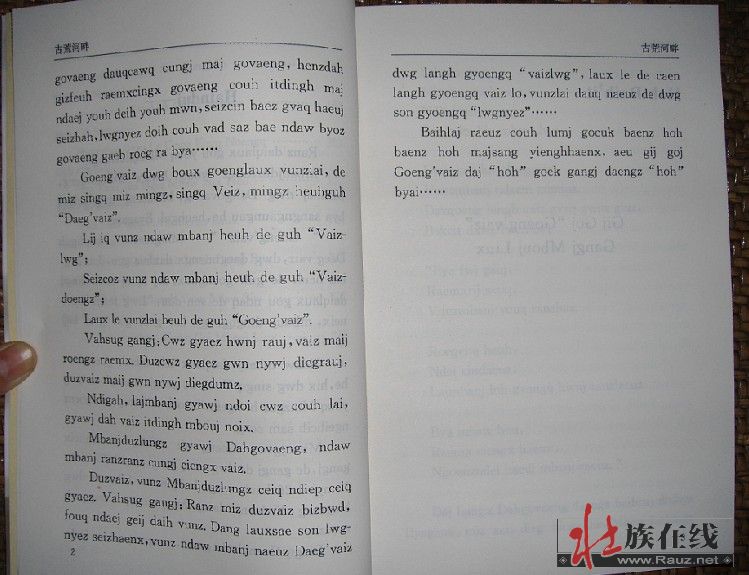 古荒河畔
govaeng dauqcawq cungj maj govaeng, henzdah
gizfeuh raemxcingx govaeng couh itdingh maj
ndaej youh deih youh mwn, seizcin baez gvaq haeuj
seizhah, lwgnyez doih couh vad saz bae ndaw byoz
govaeng gaeb rocg ra bya……
Goeng vaiz dwg boux goenglaux vunzlai, de
miz singq miz mingz, singq Veiz, mingz heuhguh
“Daeg'vaiz”.
Lij iq vunz ndaw mbanj heuh de guh “Vaiz-
lwg”;
Seizcoz vunz ndaw mbanj heuh de guh “Vaiz-
doengz”;
Laux le vunzlai heuh de guh “Goeng'vaiz”.
Vahsug gangj: Cwz gyaez hwnj rauj, vaiz maij
roengz raemx. Duzcwz gyaez gwn nywj diegrauj,
duzvaiz maij gwn nywj diegdumz.
Ndigah, lajmbanj gyawj ndoi cwz couh lai,
gyawj dah vaiz itdingh mbouj noix.
Mbanjduzlungz gyawj Dahgovaeng, ndaw
mbanj ranzranz cungj ciengx vaiz.
Duzvaiz, vunz Mbanjduzlungz ceiq ndiep ceiq
gyaez. Vahsug gangj: Ranz miz duzvaiz bizbwd,
fouq ndaej geij daih vunz. Dang lauxsae son lwg-
nyez seizhaenx, vunz ndaw mbanj naeuz Daeg'vaiz
2
古荒河畔
dwg langh gyoengq “vaizlwg”, laux le de raen
langh gyoengq vaiz lo, vunzlai dauq naeuz de dwg
son gyoengq “lwgnyez”……
Baihlaj raeuz couh lumj gocuk baenz hoh
baenz hoh majsang yienghhaenx, aeu gij goj
Goeng'vaiz daj “hoh” gock gangj daengz “hoh”
byai……
壮族在线
www.Rauz.net